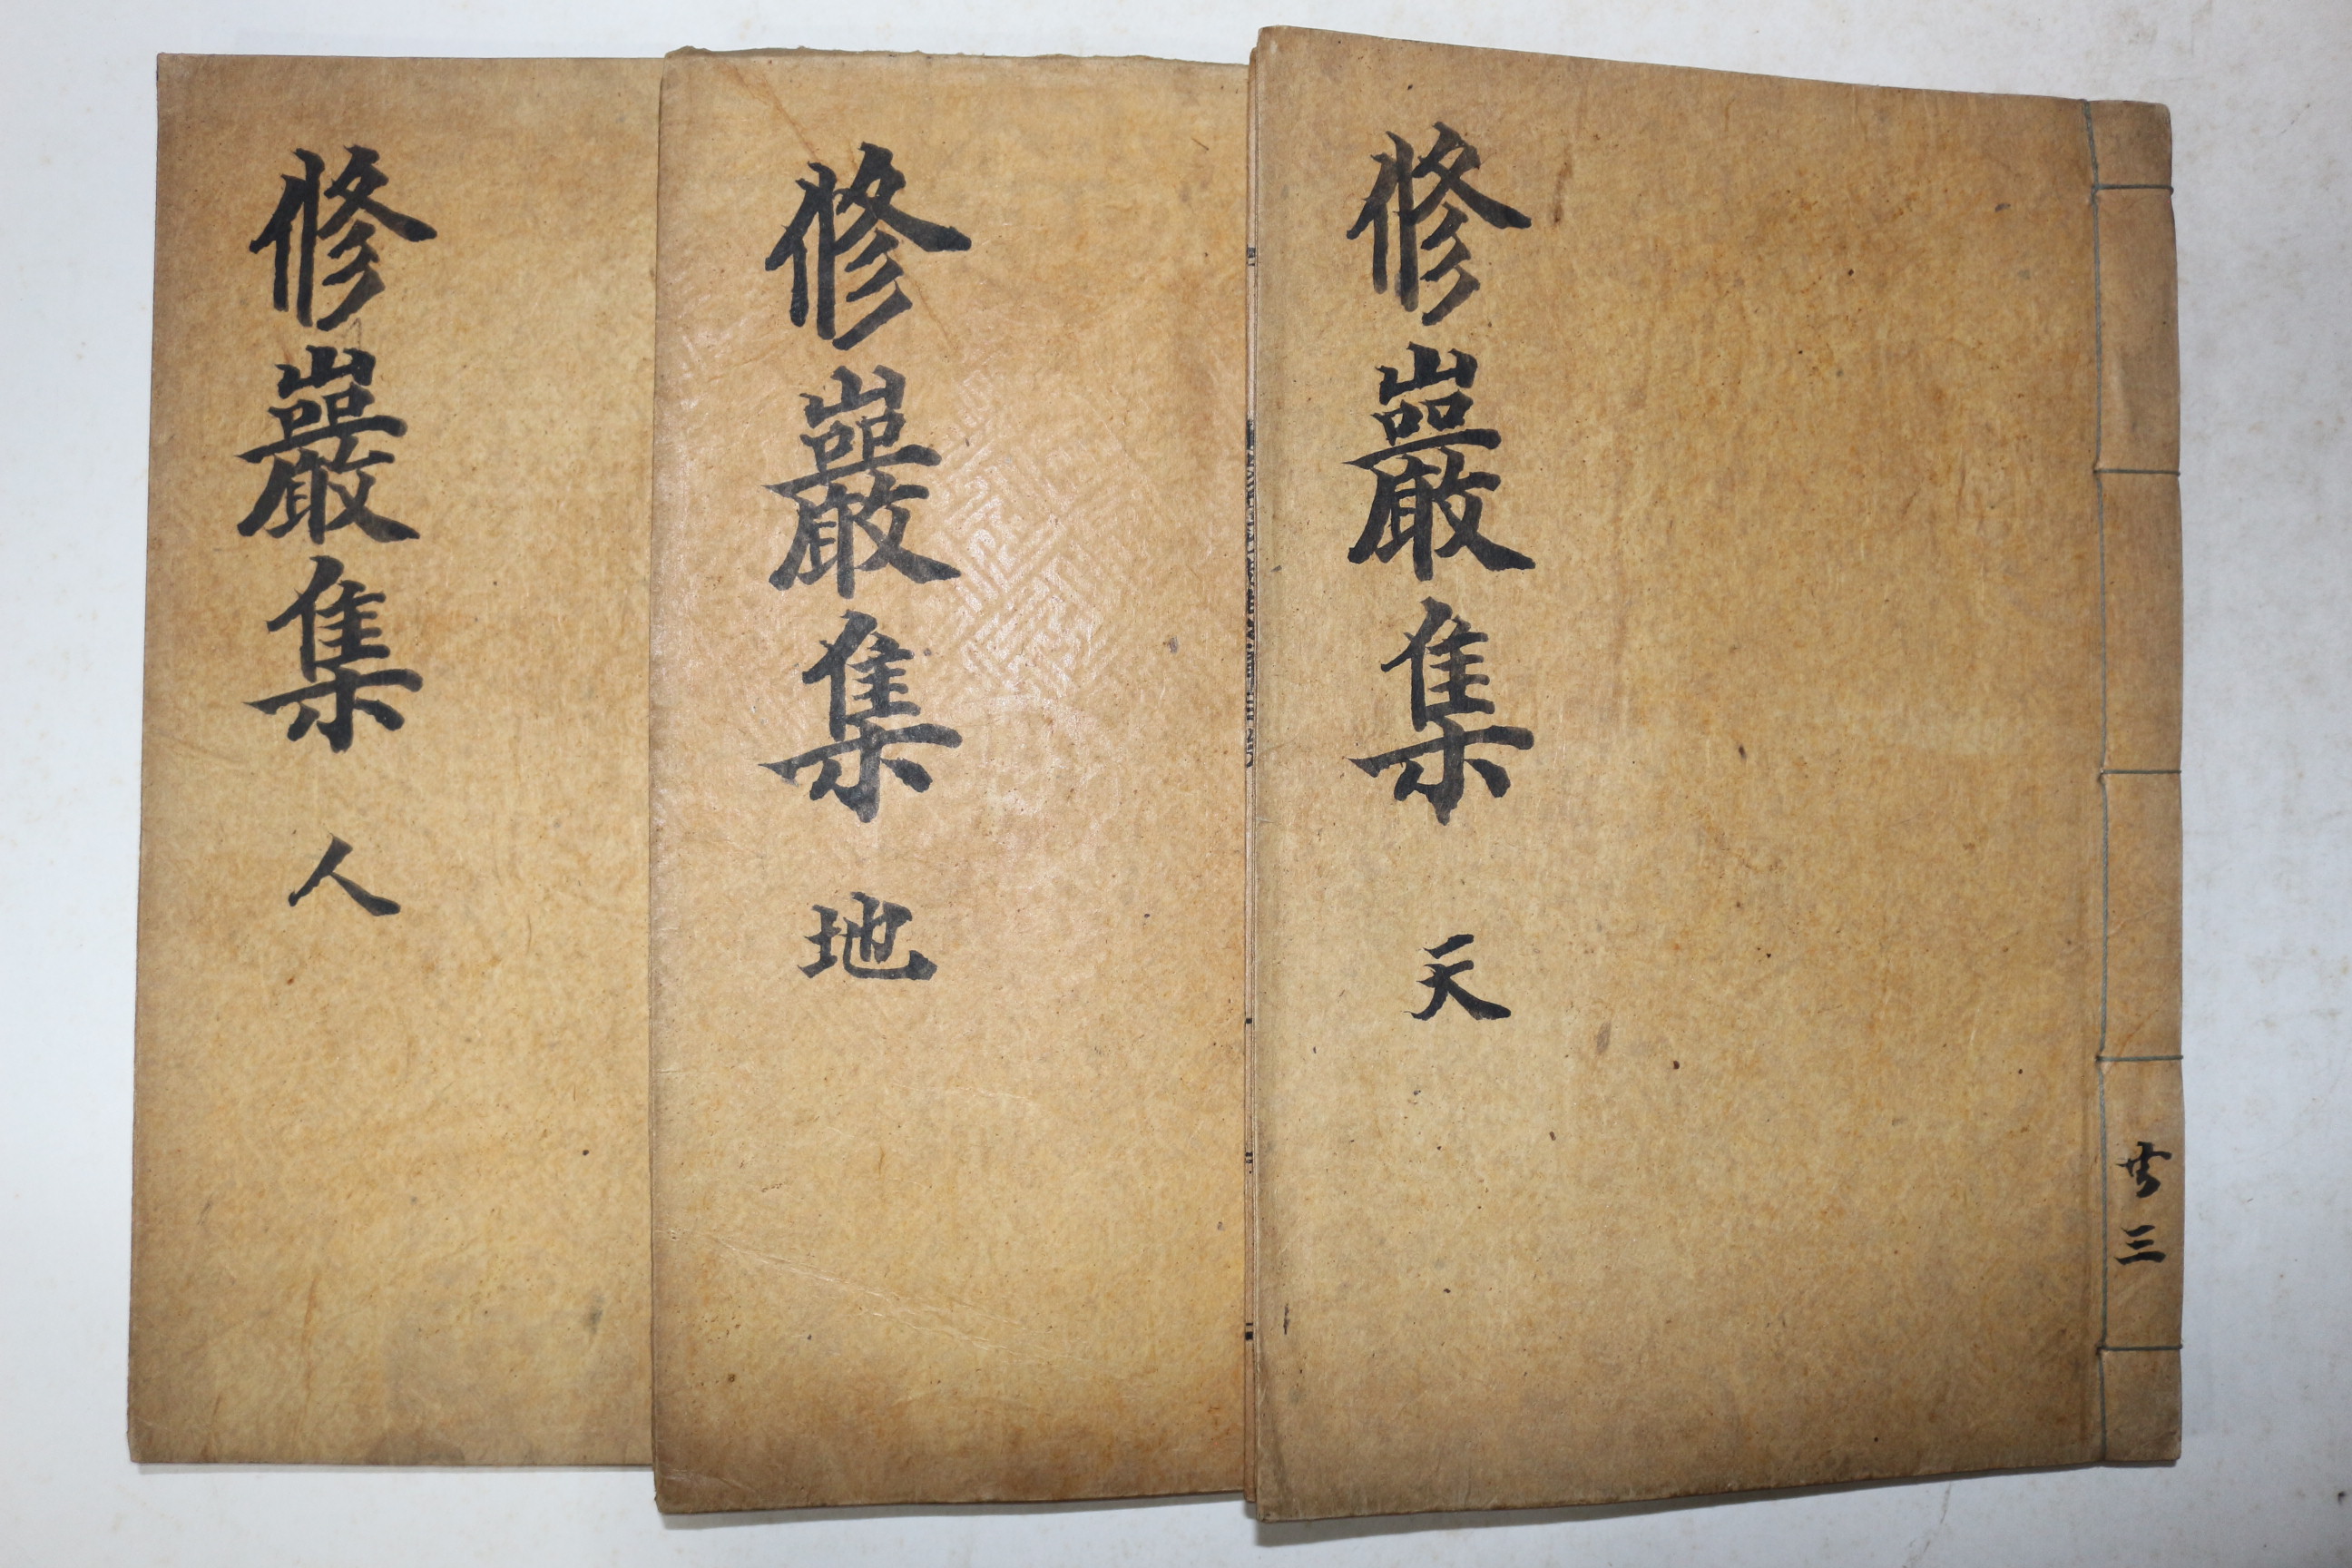 修巖集 天
共三
修巖集 地
修巖集 人